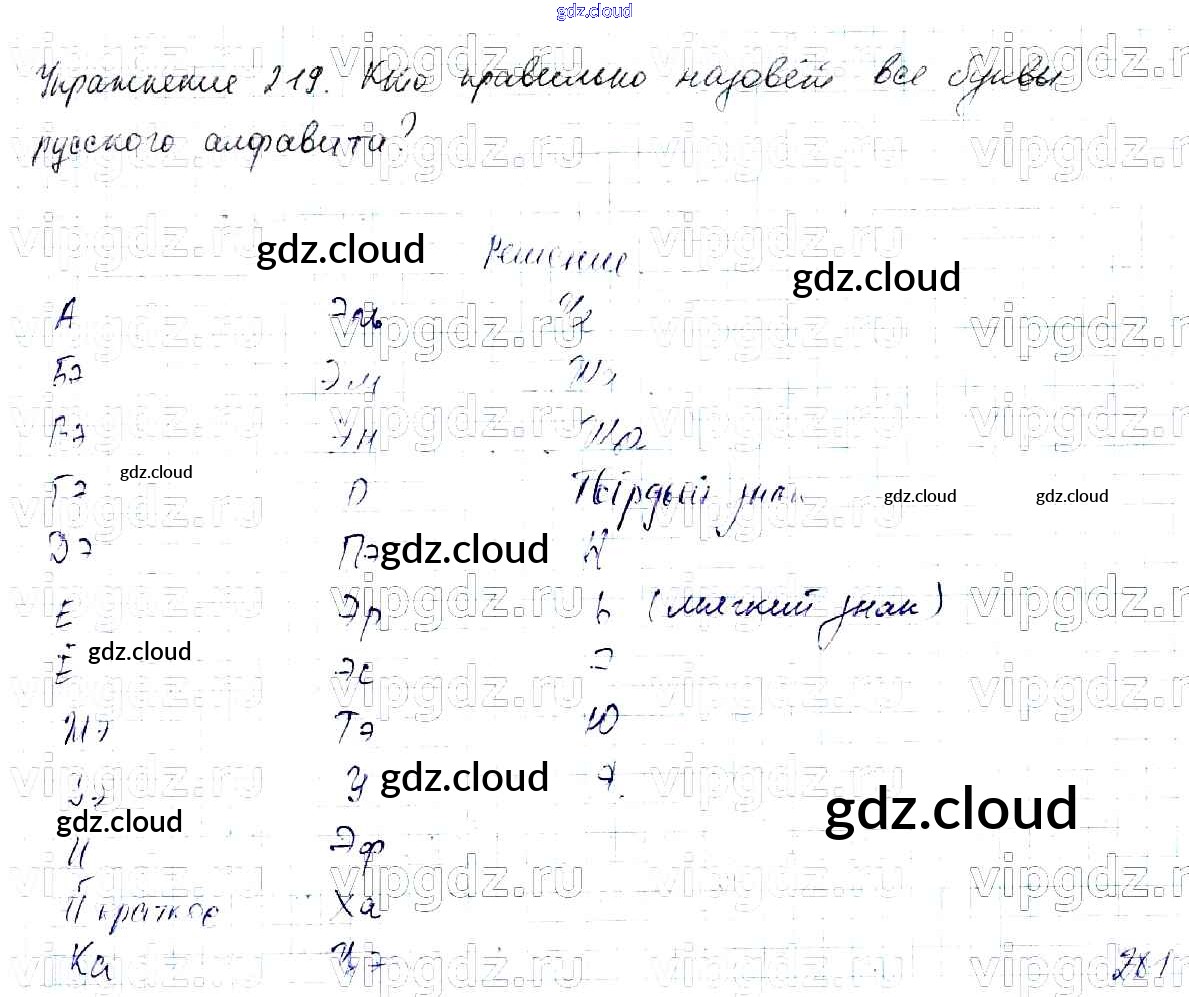 gdz.cloud
Упражнение 219. Кто правильно назовёт все буквы
русского алфавита?
gdz.cloud Решение gdz.cloud
А Эль Че
Бэ Эм Ша
Вэ Эн Ща
Гэ gdz.cloud О Твёрдый знак gdz.cloud gdz.cloud
Дэ Пэ gdz.cloud Ы
Е Эр ь (мягкий знак)
Ё gdz.cloud Эс Э
Жэ Тэ Ю
Зэ У gdz.cloud Я gdz.cloud
gdz.cloud
И Эф
И краткое Ха
Ка Цэ
vipgdz.ru